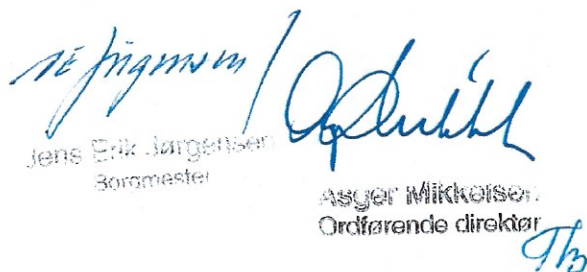 JE Jørgensen /
Jens Erik Jørgensen
Borgmester
Asger Mikkelsen
Ordførende direktør